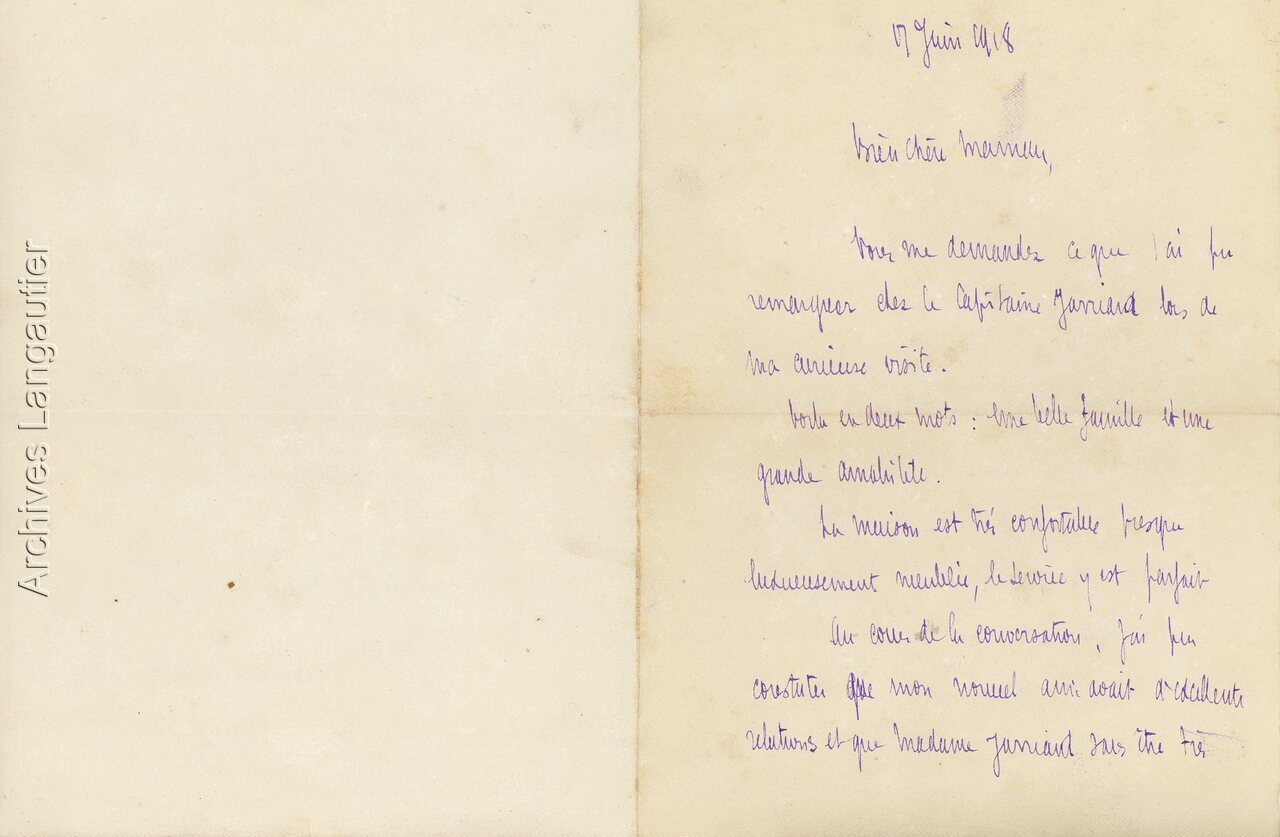 Archives Langautier
17 Juin 1918
Bien chère Maman,
Vous me demandez ce que j'ai pu
remarquer chez le Capitaine Jarriard lors de
ma curieuse visite.
Voila en deux mots : Une belle famille et une
grande amabilité.
La maison est très confortable presque
luxueusement meublée, le service y est parfait
Au cours de la conversation, j'ai pu
constater que mon nouvel ami avait d'excellente
relations et que Madame Jarriard sans être très